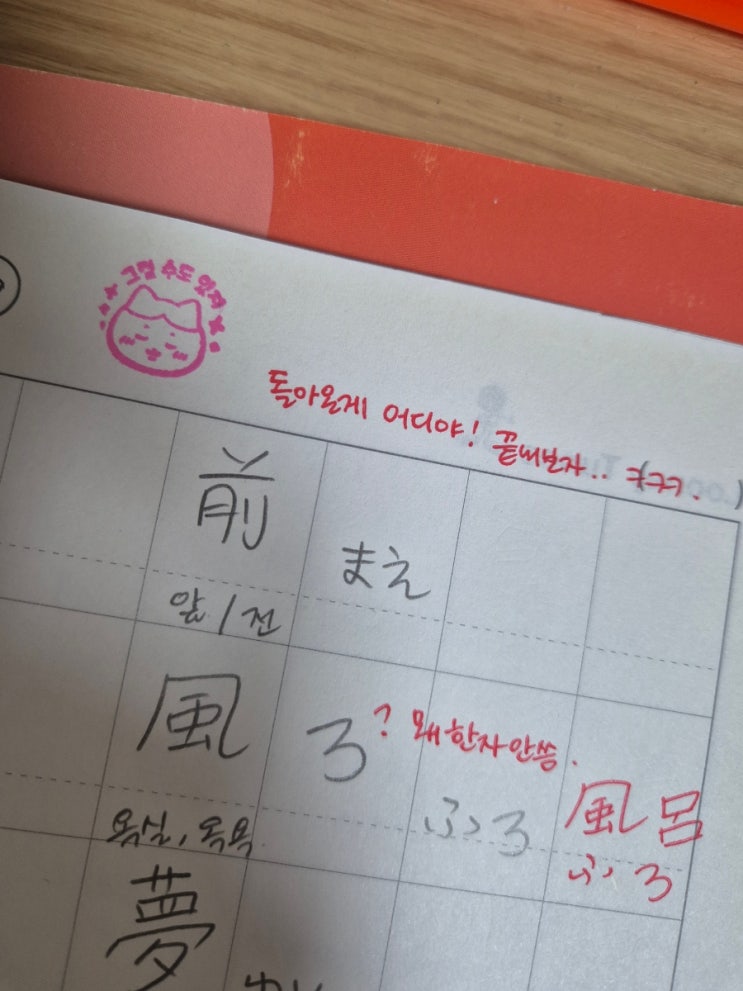 그럴 수도 있지
돌아온게 어디야! 끝내보자.. ㅋㅋㅋ.
前 まえ
앞 / 전
風 ろ ? 왜 한자 안씀.
ふろ 風呂
욕실, 욕욕 ふろ
夢